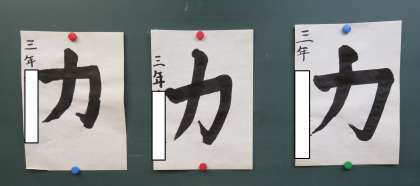 三年
力
三年
力
三年
力